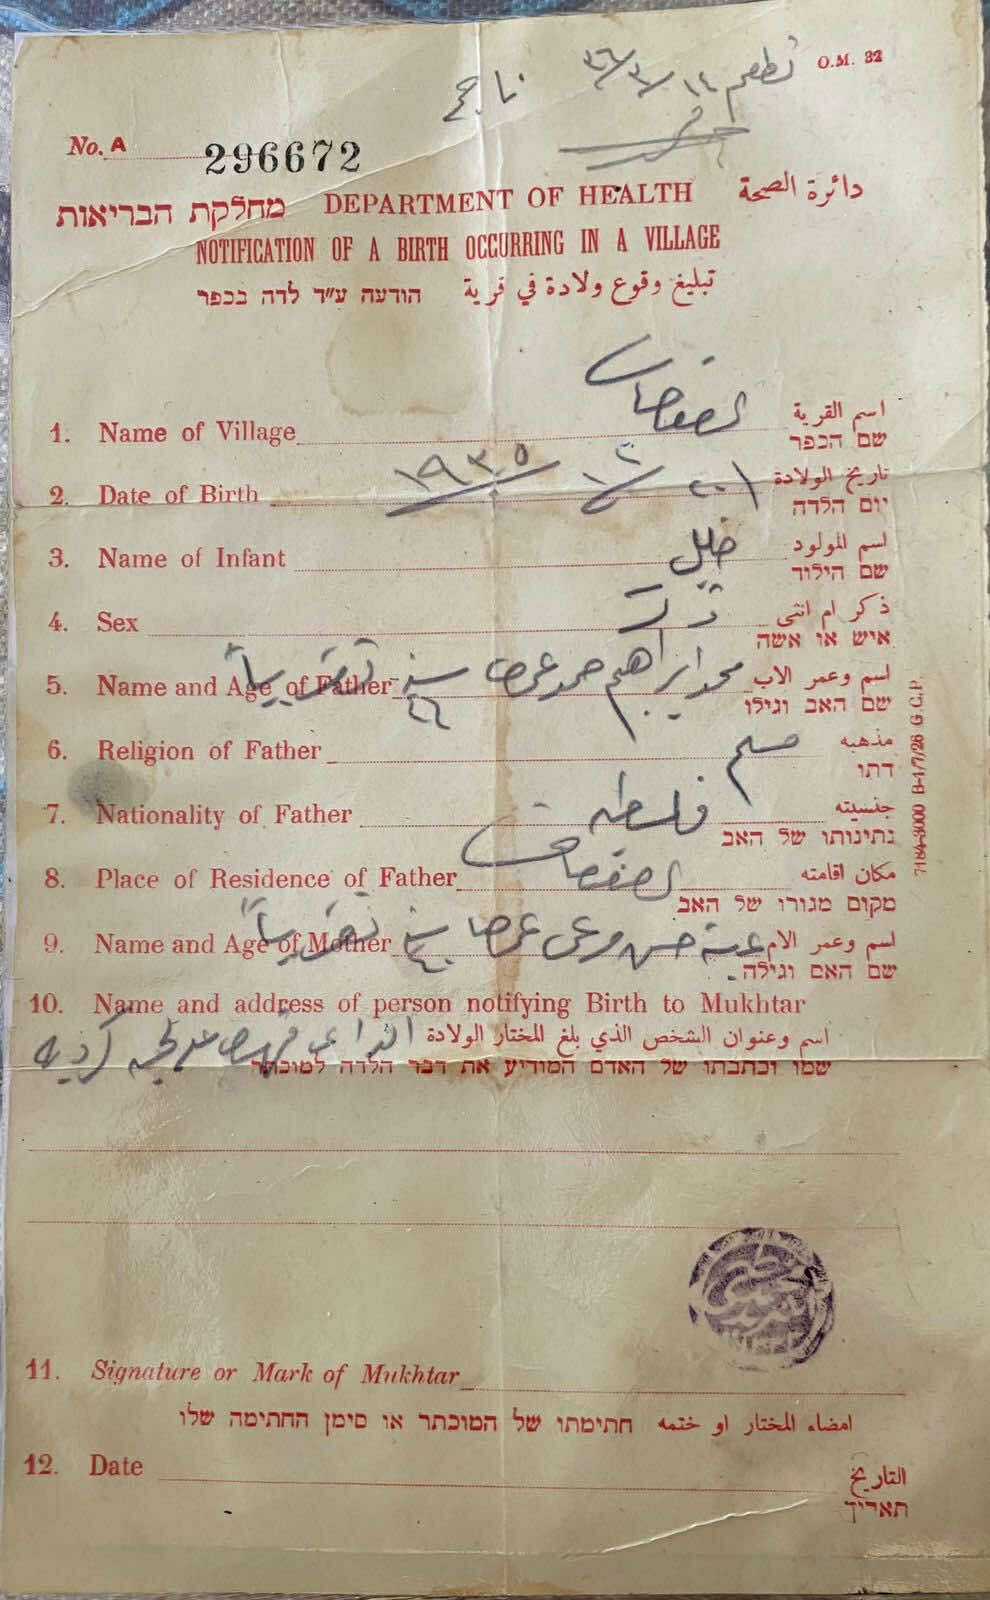 O.M. 32
تطعم ١٤/٣/٣٦
ناجح
No. A 296672
מחלקת הבריאות DEPARTMENT OF HEALTH دائرة الصحة
NOTIFICATION OF A BIRTH OCCURRING IN A VILLAGE
הודעה ע״ד לדה בכפר تبليغ وقوع ولادة في قرية
1. Name of Village اسم القرية
שם הכפר
2. Date of Birth ١٩٣٥ تاريخ الولادة
יום הלדה
3. Name of Infant خليل اسم المولود
שם הילוד
4. Sex ذكر ام انثى
איש או אשה
5. Name and Age of Father محمد ابراهيم حمد سنة تقريباً اسم وعمر الاب
שם האב וגילו
6. Religion of Father مسلم مذهبه
דתו
7. Nationality of Father فلسطينى جنسيته
נתינותו של האב
8. Place of Residence of Father مكان اقامته
מקום מגורו של האב
9. Name and Age of Mother حسن مرعى سنة تقريباً اسم وعمر الام
שם האם וגילה
10. Name and address of person notifying Birth to Mukhtar
اسم وعنوان الشخص الذي بلغ المختار الولادة
שמו וכתבתו של האדם המודיע את דבר הלדה למוכתר
11. Signature or Mark of Mukhtar
חתימתו של המוכתר או סימן החתימה שלו امضاء المختار او ختمه
12. Date التاريخ
תאריך
7184-3000 B-1/7/26 G.C.P.